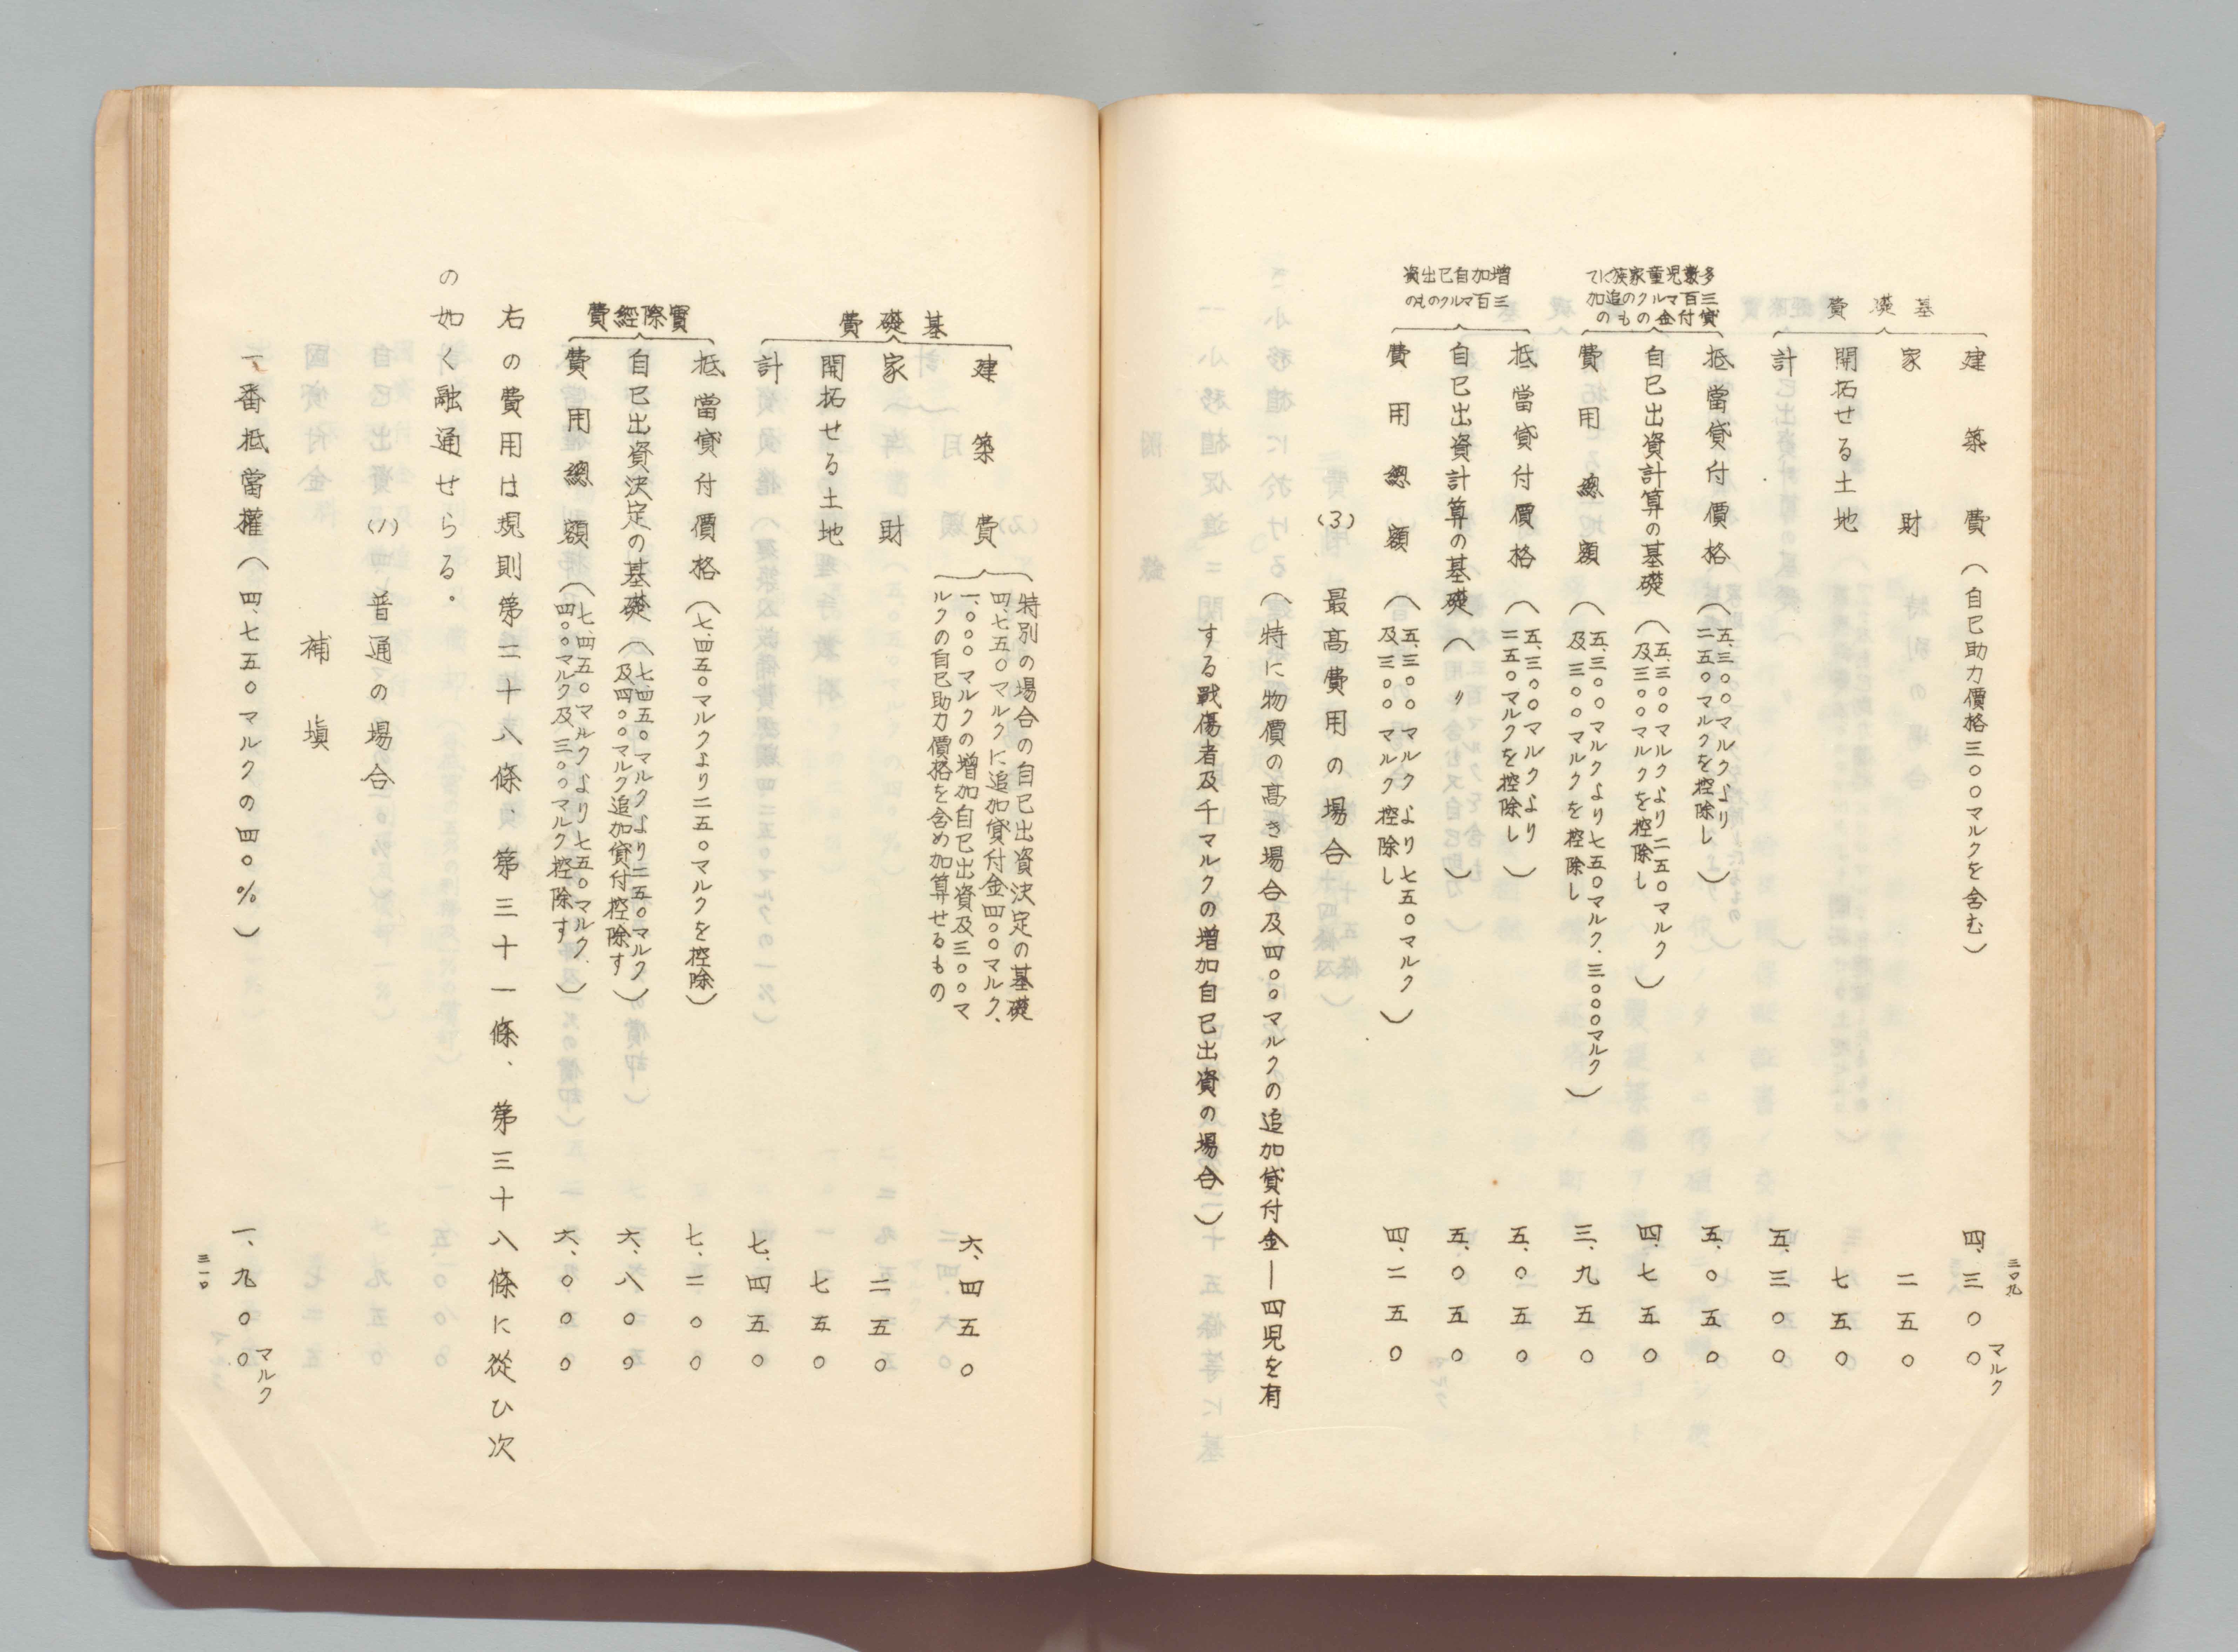 三〇九
基礎費
建築費（自己助力價格三〇〇マルクを含む） 四、三〇〇マルク
家財 二五〇
開拓せる土地 七五〇
計 五、三〇〇
多數児童家族にて
三百マルクの追加
貸付金のもの
抵當貸付價格（五、三〇〇マルクより
二五〇マルクを控除し） 五、〇五〇
自己出資計算の基礎（五、三〇〇マルクより二五〇マルク
及三〇〇マルクを控除し） 四、七五〇
費用總額（五、三〇〇マルクより七五〇マルク、三〇〇〇マルク
及三〇〇マルクを控除し） 三、九五〇
増加自己出資
三百マルクのもの
抵當貸付價格（五、三〇〇マルクより
二五〇マルクを控除し） 五、〇五〇
自己出資計算の基礎（〃） 五、〇五〇
費用總額（五、三〇〇マルクより七五〇マルク
及三〇〇マルク控除し） 四、二五〇
(3) 最高費用の場合
（特に物價の高き場合及四〇〇マルクの追加貸付金―四児を有
する戰傷者及千マルクの増加自己出資の場合）
基礎費
建築費
特別の場合の自己出資決定の基礎
四、七五〇マルクに追加貸付金四〇〇マルク、
一、〇〇〇マルクの増加自己出資及三〇〇マ
ルクの自己助力價格を含め加算せるもの
六、四五〇
家財 二五〇
開拓せる土地 七五〇
計 七、四五〇
實際經費
抵當貸付價格（七、四五〇マルクより二五〇マルクを控除） 七、二〇〇
自己出資決定の基礎（七、四五〇マルクより二五〇マルク
及四〇〇マルク追加貸付控除す） 六、八〇〇
費用總額（七、四五〇マルクより七五〇マルク、
四〇〇マルク及三〇〇マルク控除す） 六、〇〇〇
右の費用は規則第二十八條、第三十一條、第三十八條に從ひ次
の如く融通せらる。
(1) 普通の場合
補塡
一、番抵當權（四、七五〇マルクの四〇％） 一、九〇〇マルク
三一〇